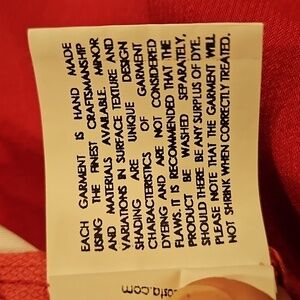 EACH GARMENT IS HAND MADE
USING THE FINEST CRAFTSMANSHIP
AND MATERIALS AVAILABLE. MINOR
VARIATIONS IN SURFACE TEXTURE AND
SHADING ARE UNIQUE DESIGN
CHARACTERISTICS OF GARMENT
DYEING AND ARE NOT CONSIDERED
FLAWS. IT IS RECOMMENDED THAT THE
PRODUCT BE WASHED SEPARATELY,
SHOULD THERE BE ANY SURPLUS OF DYE.
PLEASE NOTE THAT THE GARMENT WILL
NOT SHRINK WHEN CORRECTLY TREATED.
osta.com